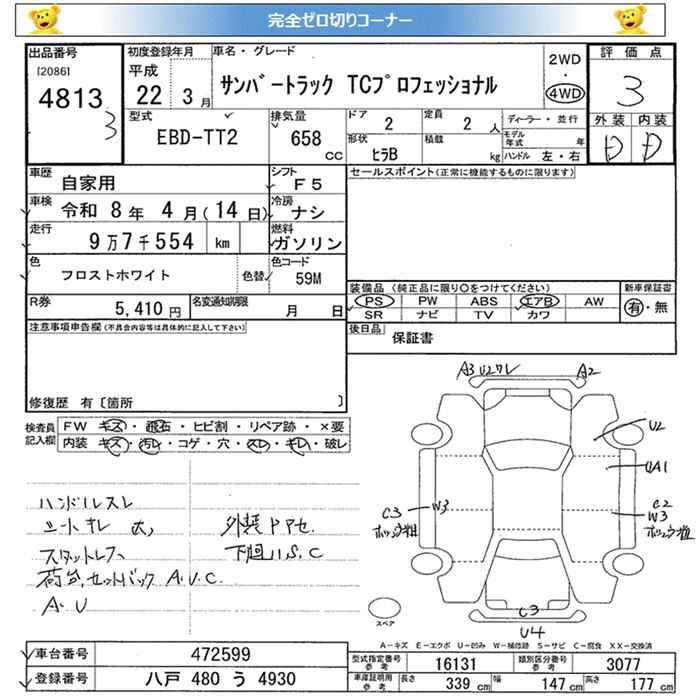 完全ゼロ切りコーナー
出品番号
[2086]
4813
3
初度登録年月
平成
22 3月
車名・グレード
サンバートラック TCプロフェッショナル
2WD
・
4WD
評価点
3
外装 内装
D D
型式
EBD-TT2
排気量
658
cc
ドア
2
定員
2人
形状
ヒラB
積載
kg
ディーラー・並行
モデル年式 年
ハンドル 左・右
車歴
自家用
シフト
F5
車検
令和 8年 4月(14日)
冷房
ナシ
走行
9万7千554 km
燃料
ガソリン
色
フロストホワイト
色替
色コード
59M
R券
5,410円
名変通知期限
月 日
セールスポイント(正常に機能するものに限ります)
装備品(純正品に限り○をつけてください)
PS PW ABS エアB AW
SR ナビ TV カワ
新車保証書
有・無
後日品
保証書
注意事項申告欄(不具合内容等は具体的に記入して下さい)
修復歴 有〔箇所 〕
検査員記入欄
FW キズ・飛石・ヒビ割・リペア跡・×要
内装 キズ・汚レ・コゲ・穴・スレ・キレ・破レ
ハンドルスレ
シートキレ 大
スタットレス
荷台、セットバック A.U.C
A.U
外装PPセ
下廻り.S.C
A3 U2ワレ
A2
U2
UA1
C3
W3
C2
W3
C3
U4
スペア
A-キズ E-エクボ U-凹み W-補修跡 S-サビ C-腐食 XX-交換済
車台番号
472599
登録番号
八戸 480 う 4930
型式指定番号
参考
16131
類別区分番号
参考
3077
車庫証明用
参考
長さ 339 cm
幅 147 cm
高さ 177 cm